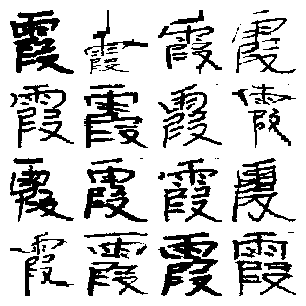 霞霞霞霞
霞霞霞霞
霞霞霞霞
霞霞霞霞